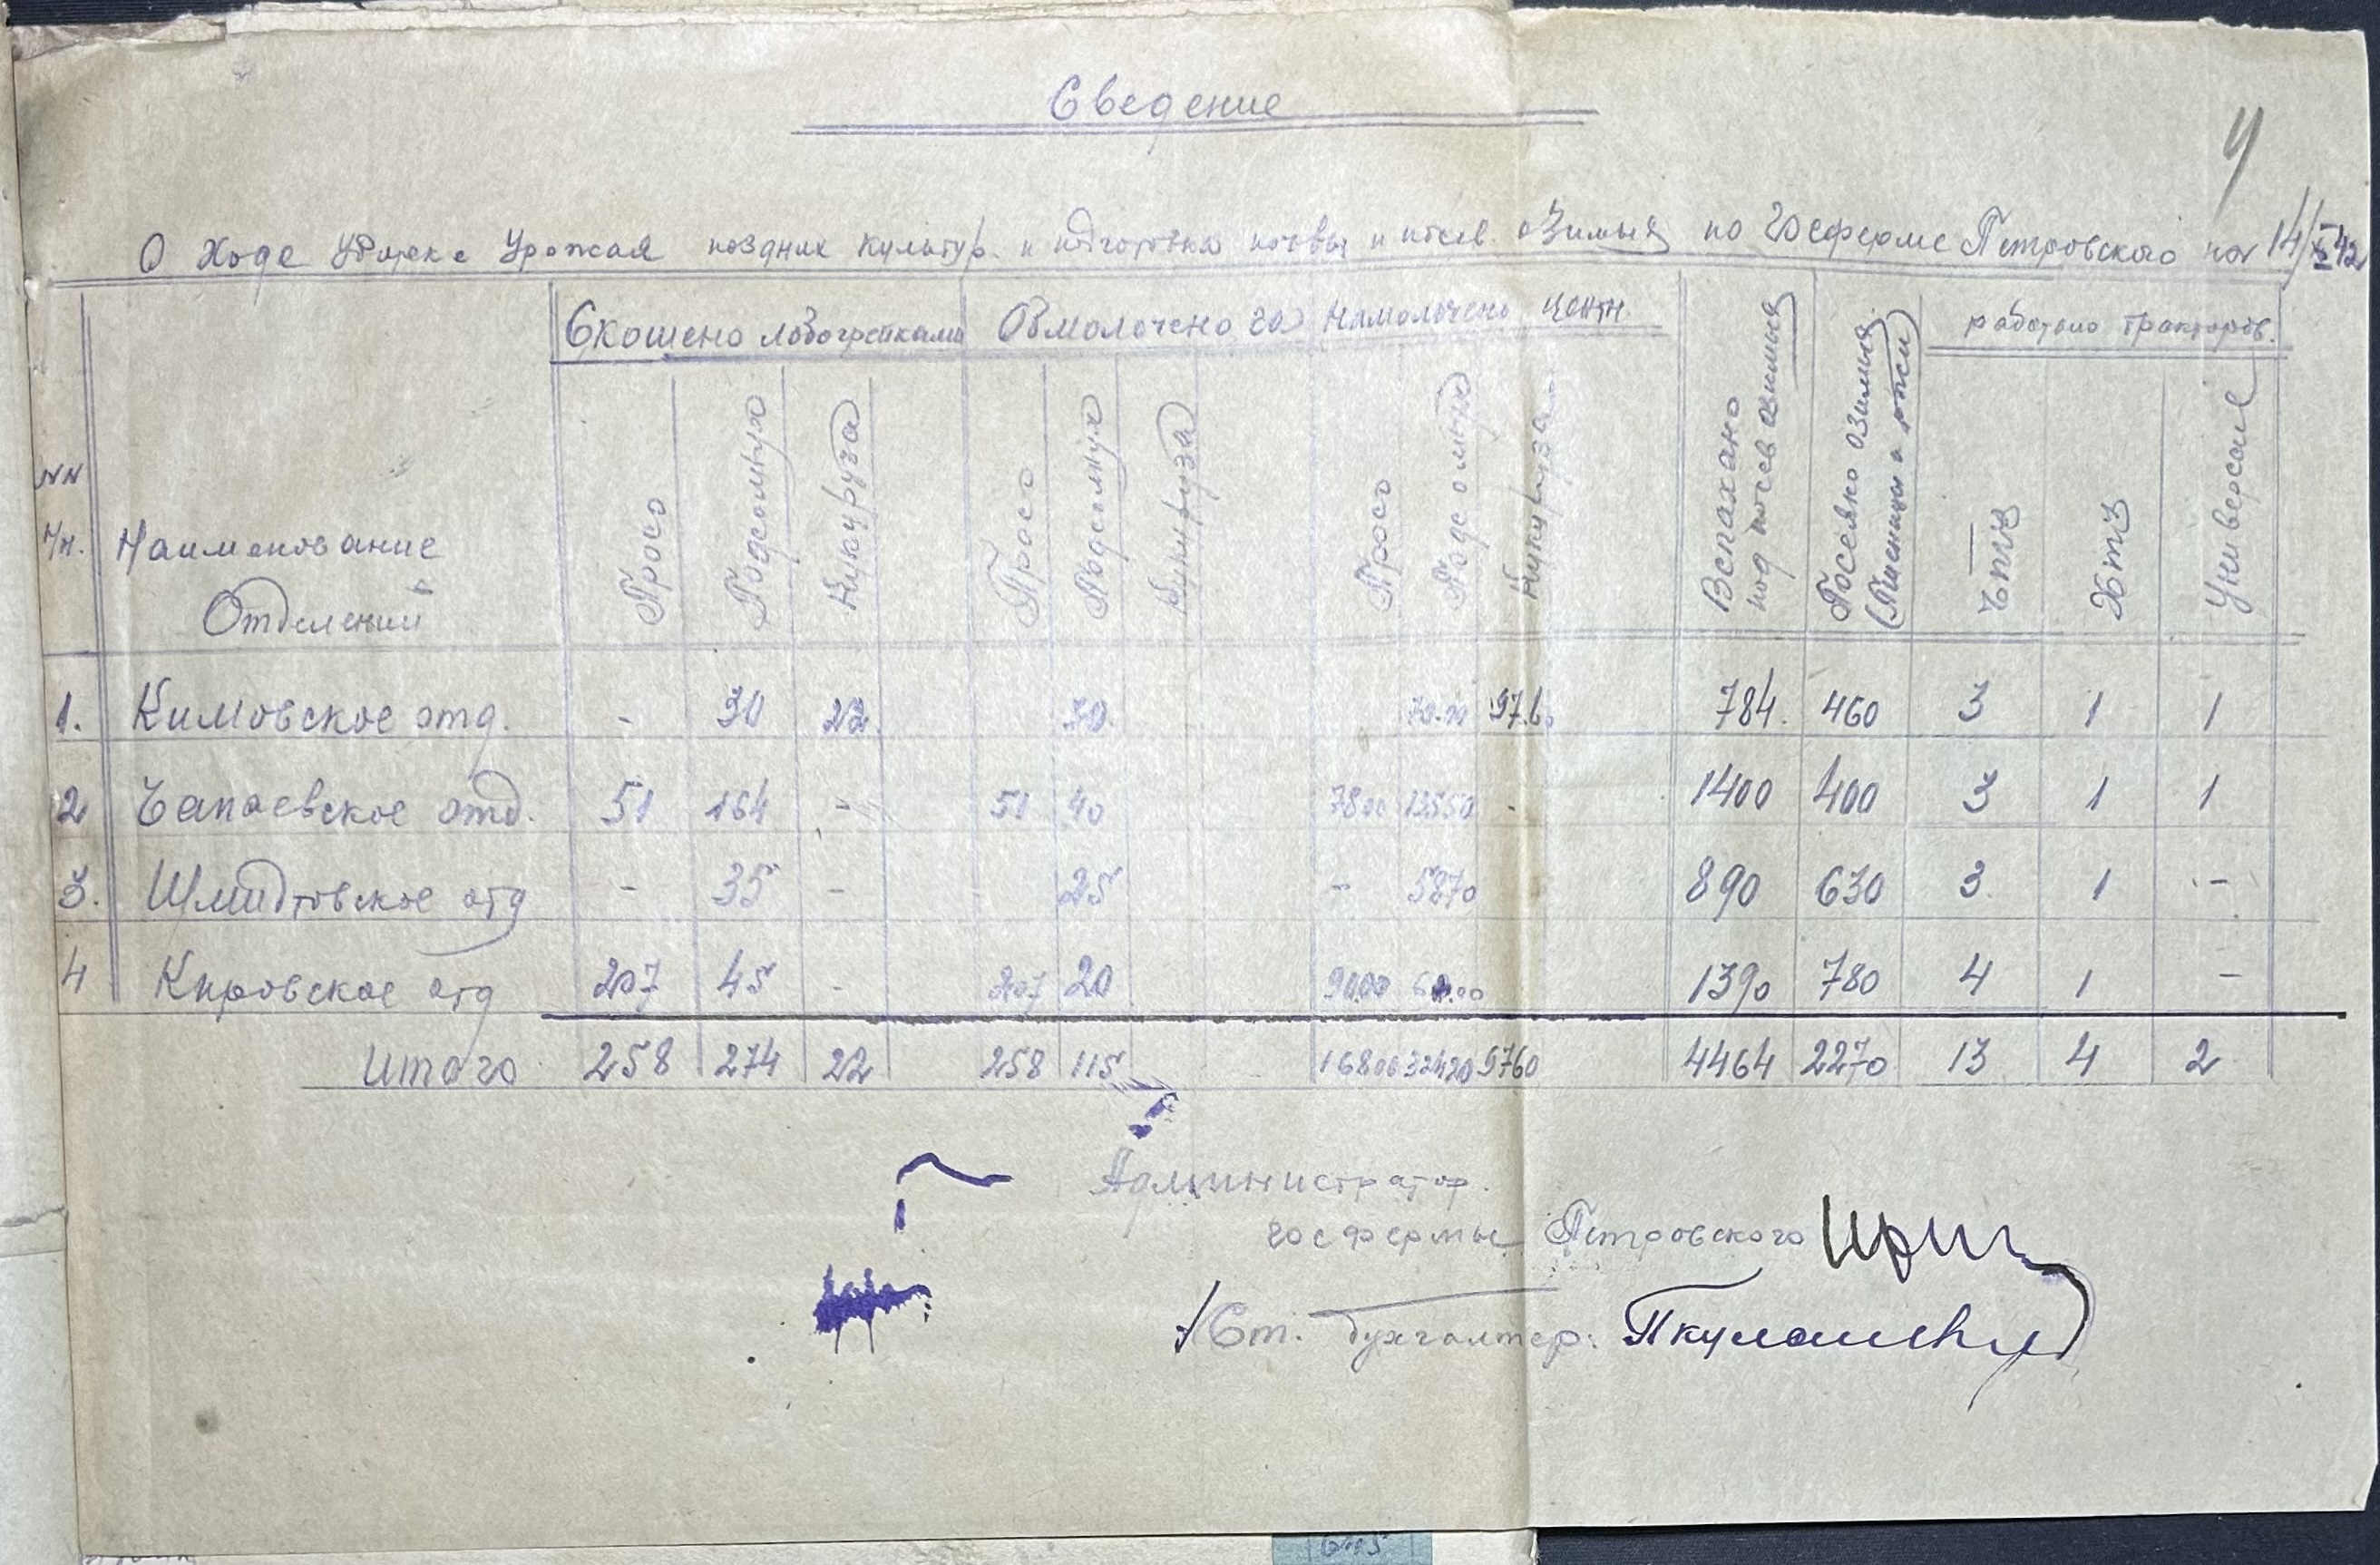 Сведение
4
О Ходе Уборке Урожая поздних культур. и подготовки почвы и посев. озимых по Госферме Петровского на 14/X 42
NN п/п. Наименование Отделений Скошено лобогрейками Обмолочено га Намолочено центн Вспахано под посев озимых Посеяно озимых (Пшеницы и ржи) работало тракторов.
Просо Подсолнух Кукуруза Просо Подсолнух Кукуруза Просо Подсолнух Кукуруза ЧТЗ ХТЗ Универсал
1. Кимовское отд. - 30 22 30 97.60 784. 460 3 1 1
2 Чапаевское отд. 51 164 - 51 40 7800 13550 - 1400 400 3 1 1
3. Шмидтовское отд - 35 - 25 - 5870 890 630 3. 1 -
4 Кировское отд 207 45 - 207 20 9000 1390 780 4 1 -
Итого 258 274 22 258 115 16800 32420 9760 4464 2270 13 4 2
Администратор.
госфермы Петровского
Ст. бухгалтер: